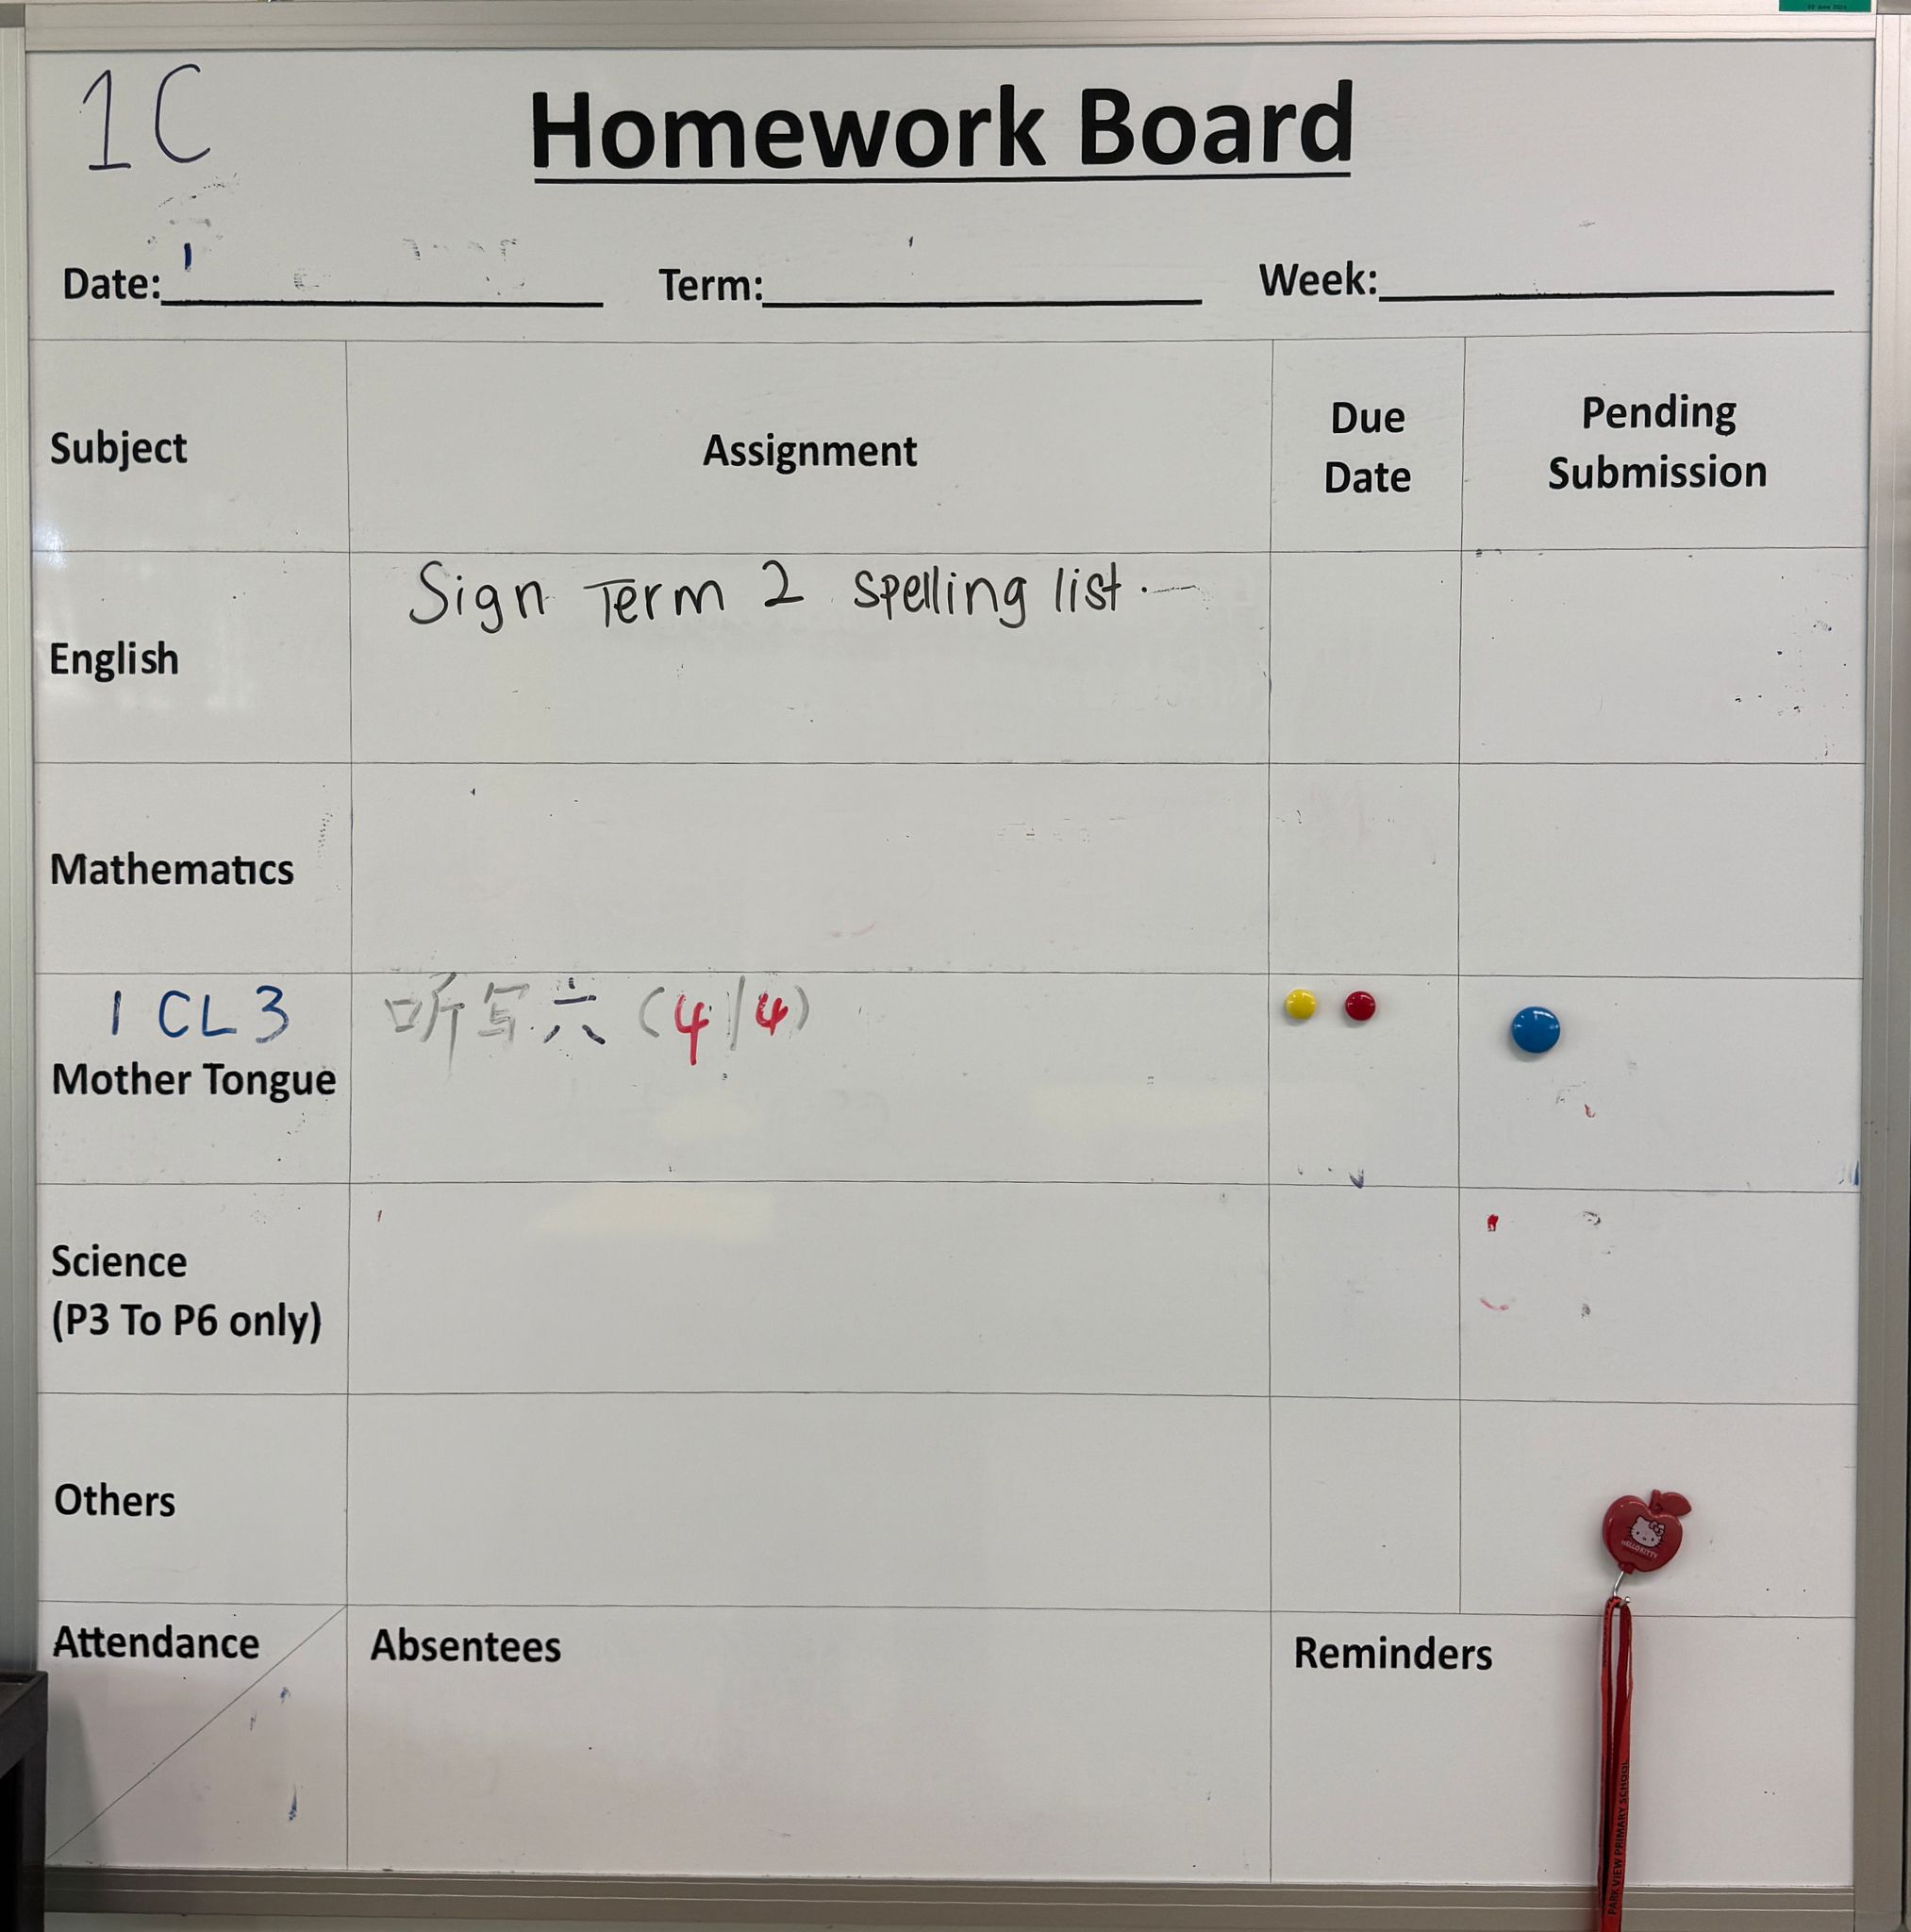 1C
Homework Board
Date: Term: Week:
Subject
Assignment
Due
Date
Pending
Submission
English
Sign Term 2 spelling list.
Mathematics
1 CL 3
Mother Tongue
听写六 (4/4)
Science
(P3 To P6 only)
Others
HELLO KITTY
Attendance
Absentees
Reminders
PARK VIEW PRIMARY SCHOOL